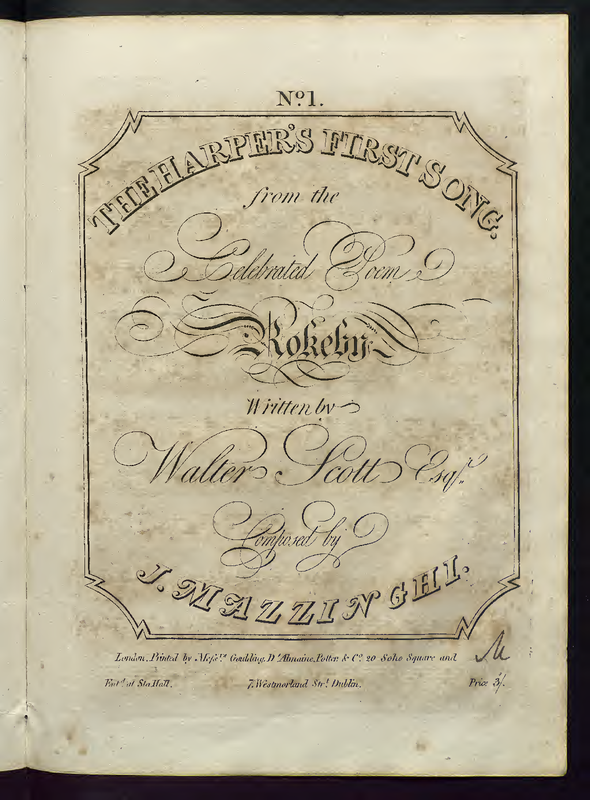 No. 1.
THE HARPER'S FIRST SONG.
from the
Celebrated Poem
Rokeby
Written by
Walter Scott Esqr.
Composed by
J. MAZZINGHI.
London, Printed by Messrs. Goulding, D'Almaine, Potter & Co. 20 Soho Square and
Entd. at Sta. Hall. 7, Westmorland Strt. Dublin. Price 3/.